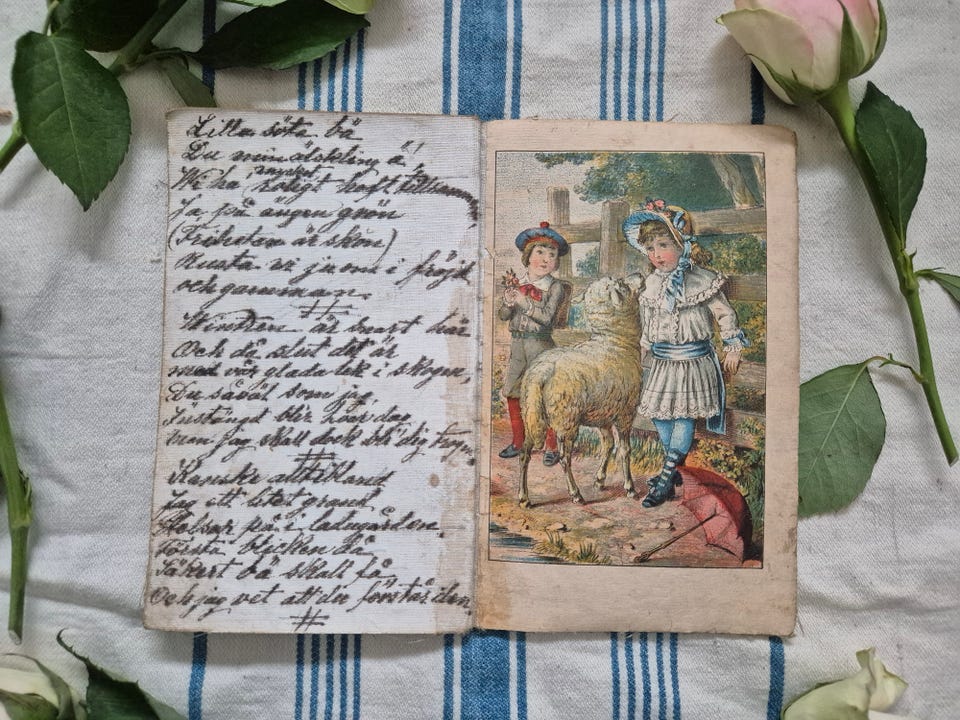 Lilla söta bä
Du min älskling ä!
mycket
Wi ha roligt haft tillsamm
Ja på ängen grön
(Friheten är skön)
Rusta vi ju om i fröjd
och gamman.
Wintren är snart här
Och då slut det är
med vår glada lek i skogen,
Du såväl som jag,
Instängd blir hvar dag
men jag skall dock bli dig trogn
Kanske alltibland
Jag ett litet grand
Helsar på i ladugården.
Första blicken då
Säkert bä skall få
Och jag vet att du förstår den.